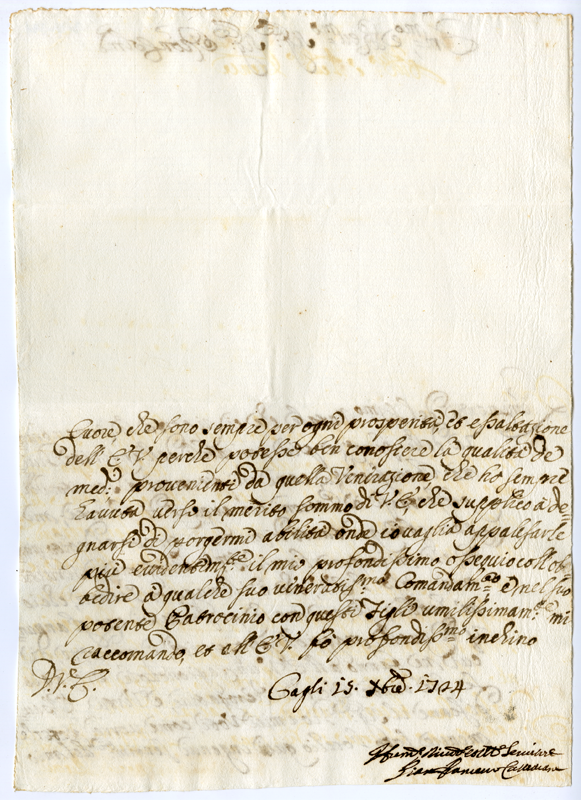 Cuore che sono sempre per ogni prosperità, et essaltazione
dell' E.V. perche potesse ben conoscere la qualità de
med.i provenienti da quella Venerazione, che ho sempre
havuta verso il merito sommo di V.E. che supplico a de
gnarsi di porgermi abilità onde io vaglia appalesarle
più evidentem.te il mio profondissimo ossequio coll' ob
bedire a qualche suo veneratis.mo Comandam.to e nel suo
potente Patrocinio con questi figli umilissimam.te mi
raccomando, et all' E.V. fo profondiss.mo inchino
D.V.E.
Cagli 15. Xbre. 1724
Servitore